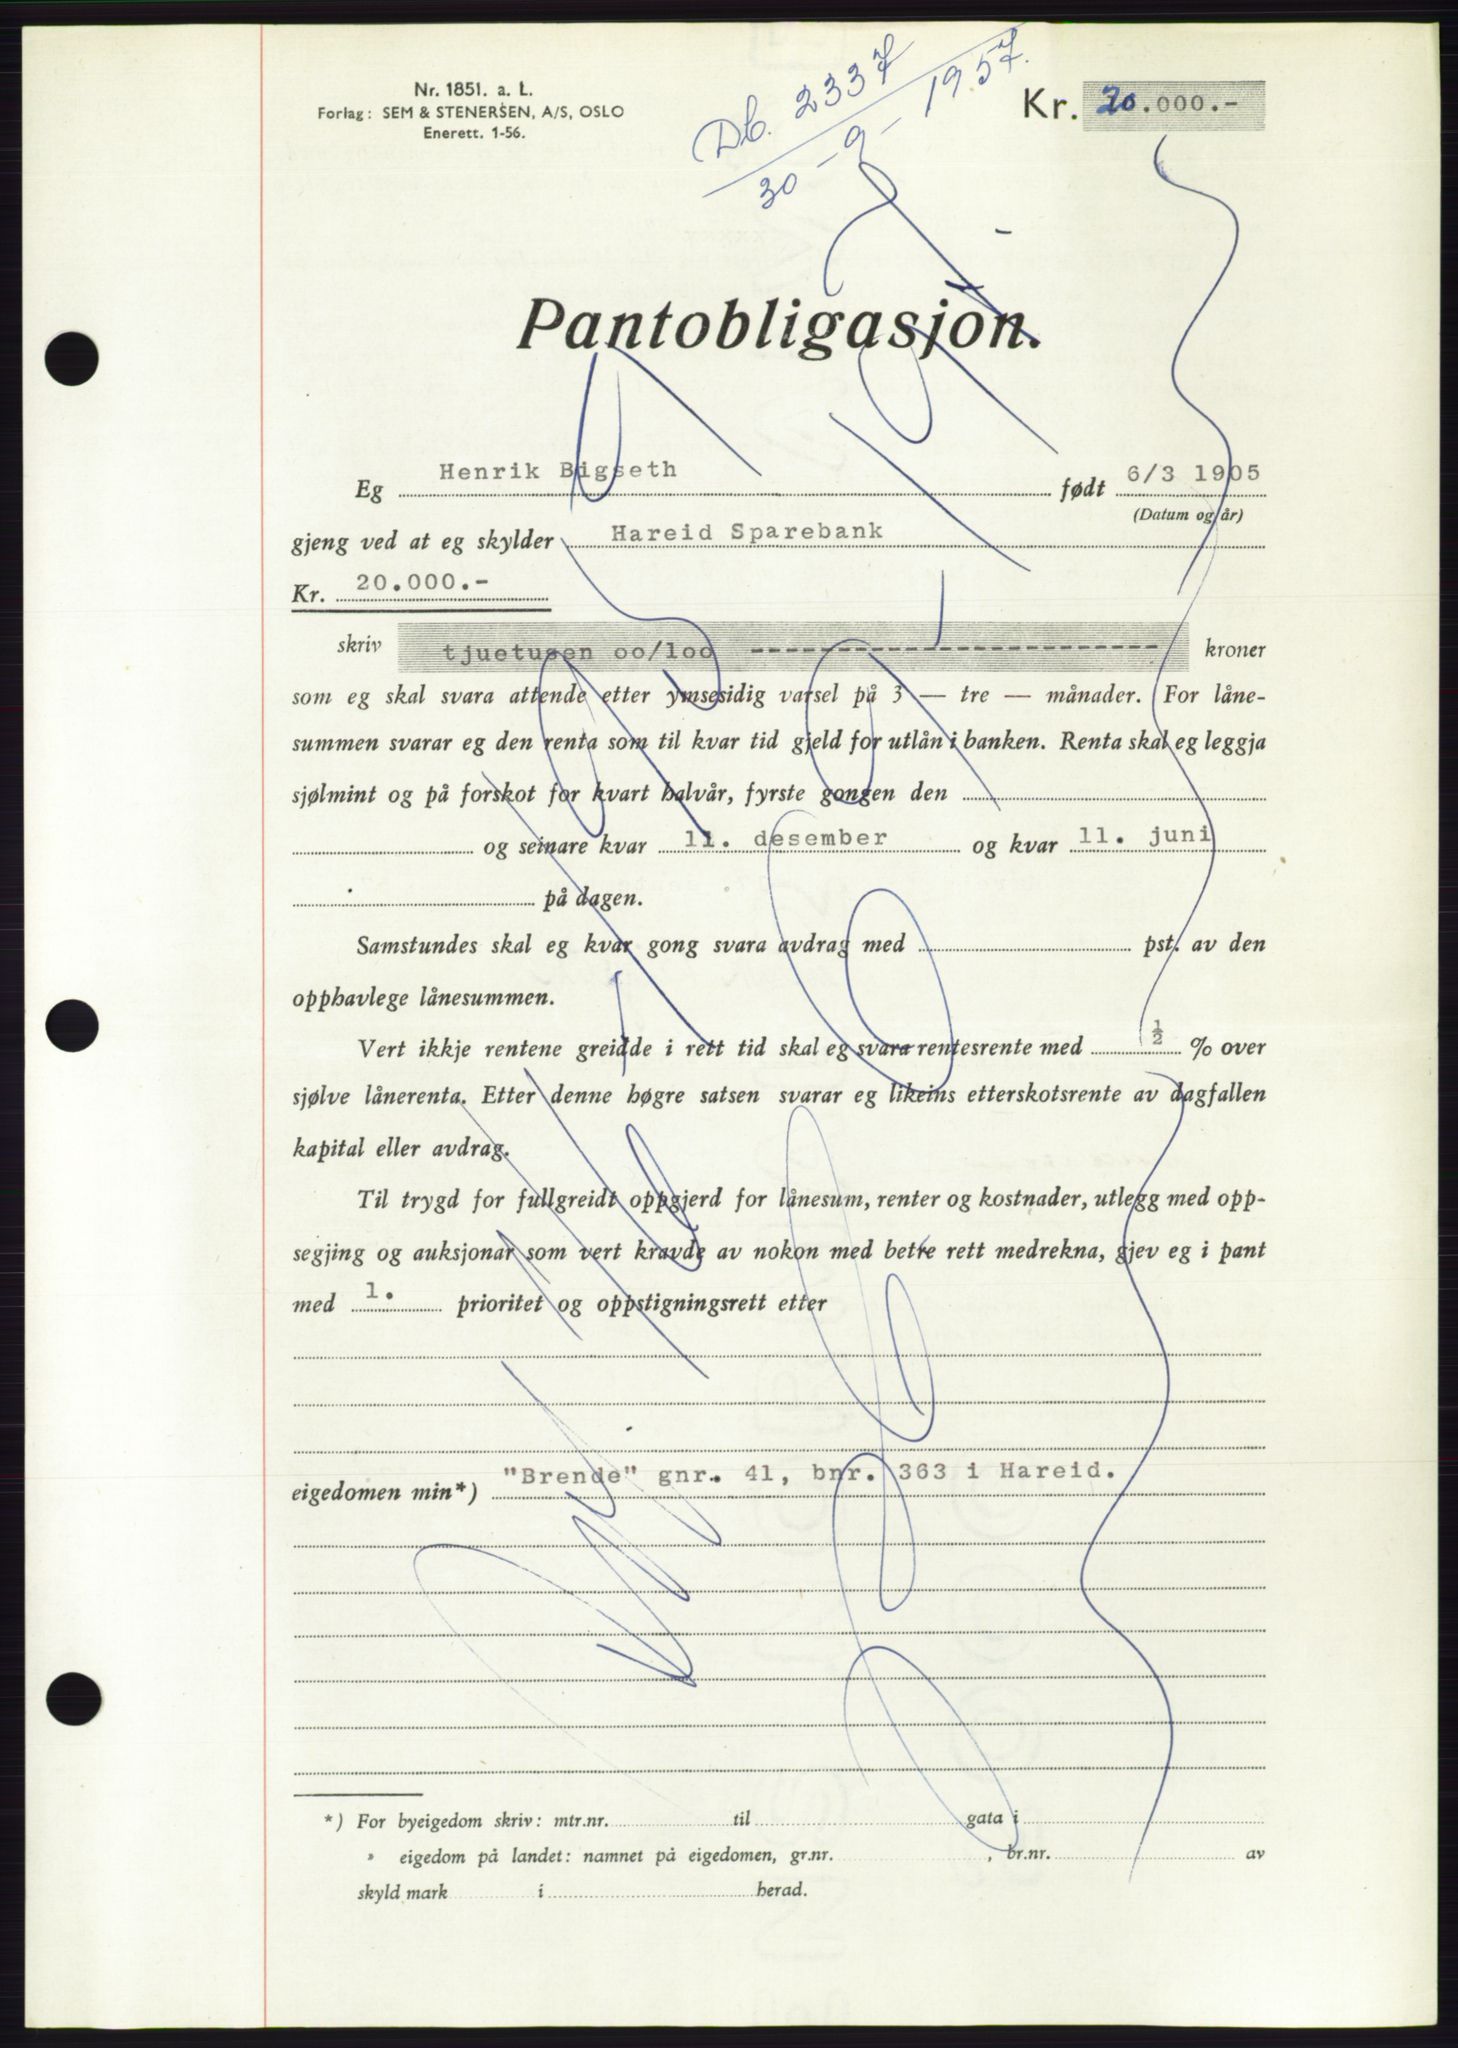 Nr. 1851. a. L.
Forlag: SEM & STENERSEN, A/S, OSLO
Enerett. 1-56.
Db. 2337
30 - 9 - 1957.
Kr. 20.000.-
Pantobligasjon.
Eg Henrik Bigseth født 6/3 1905
(Datum og år)
gjeng ved at eg skylder Hareid Sparebank
Kr. 20.000.-
skriv tjuetusen oo/loo ---------------------------- kroner
som eg skal svara attende etter ymsesidig varsel på 3 — tre — månader. For låne-
summen svarar eg den renta som til kvar tid gjeld for utlån i banken. Renta skal eg leggja
sjølmint og på forskot for kvart halvår, fyrste gongen den
og seinare kvar 11. desember og kvar 11. juni
på dagen.
Samstundes skal eg kvar gong svara avdrag med pst. av den
opphavlege lånesummen.
Vert ikkje rentene greidde i rett tid skal eg svara rentesrente med ½ % over
sjølve lånerenta. Etter denne høgre satsen svarar eg likeins etterskotsrente av dagfallen
kapital eller avdrag.
Til trygd for fullgreidt oppgjerd for lånesum, renter og kostnader, utlegg med opp-
segjing og auksjonar som vert kravde av nokon med betre rett medrekna, gjev eg i pant
med 1. prioritet og oppstigningsrett etter
eigedomen min*) "Brende" gnr. 41, bnr. 363 i Hareid.
*) For byeigedom skriv: mtr.nr. til gata i
» eigedom på landet: namnet på eigedomen, gr.nr. , br.nr. av
skyld mark i herad.